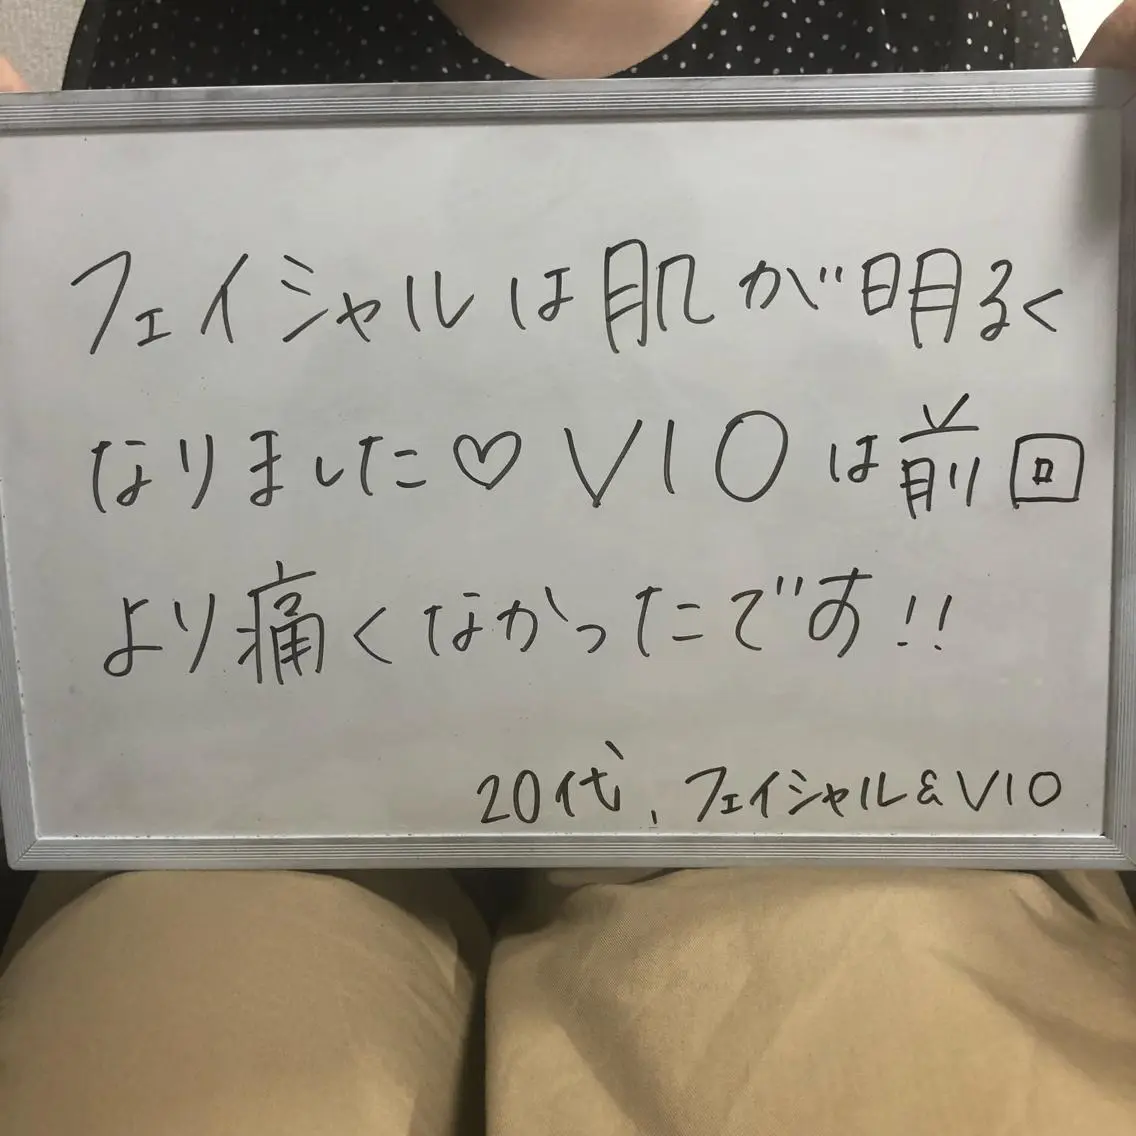 フェイシャルは肌が明るく
なりました♡VIOは前回
より痛くなかったです!!
20代、フェイシャル&VIO